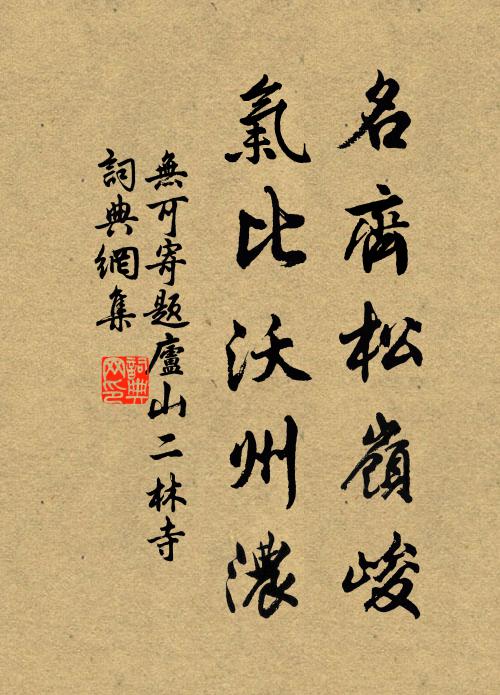 名齊松嶺峻
氣比沃州濃
無可寄題廬山二林寺
詞典網集
詞典
网印